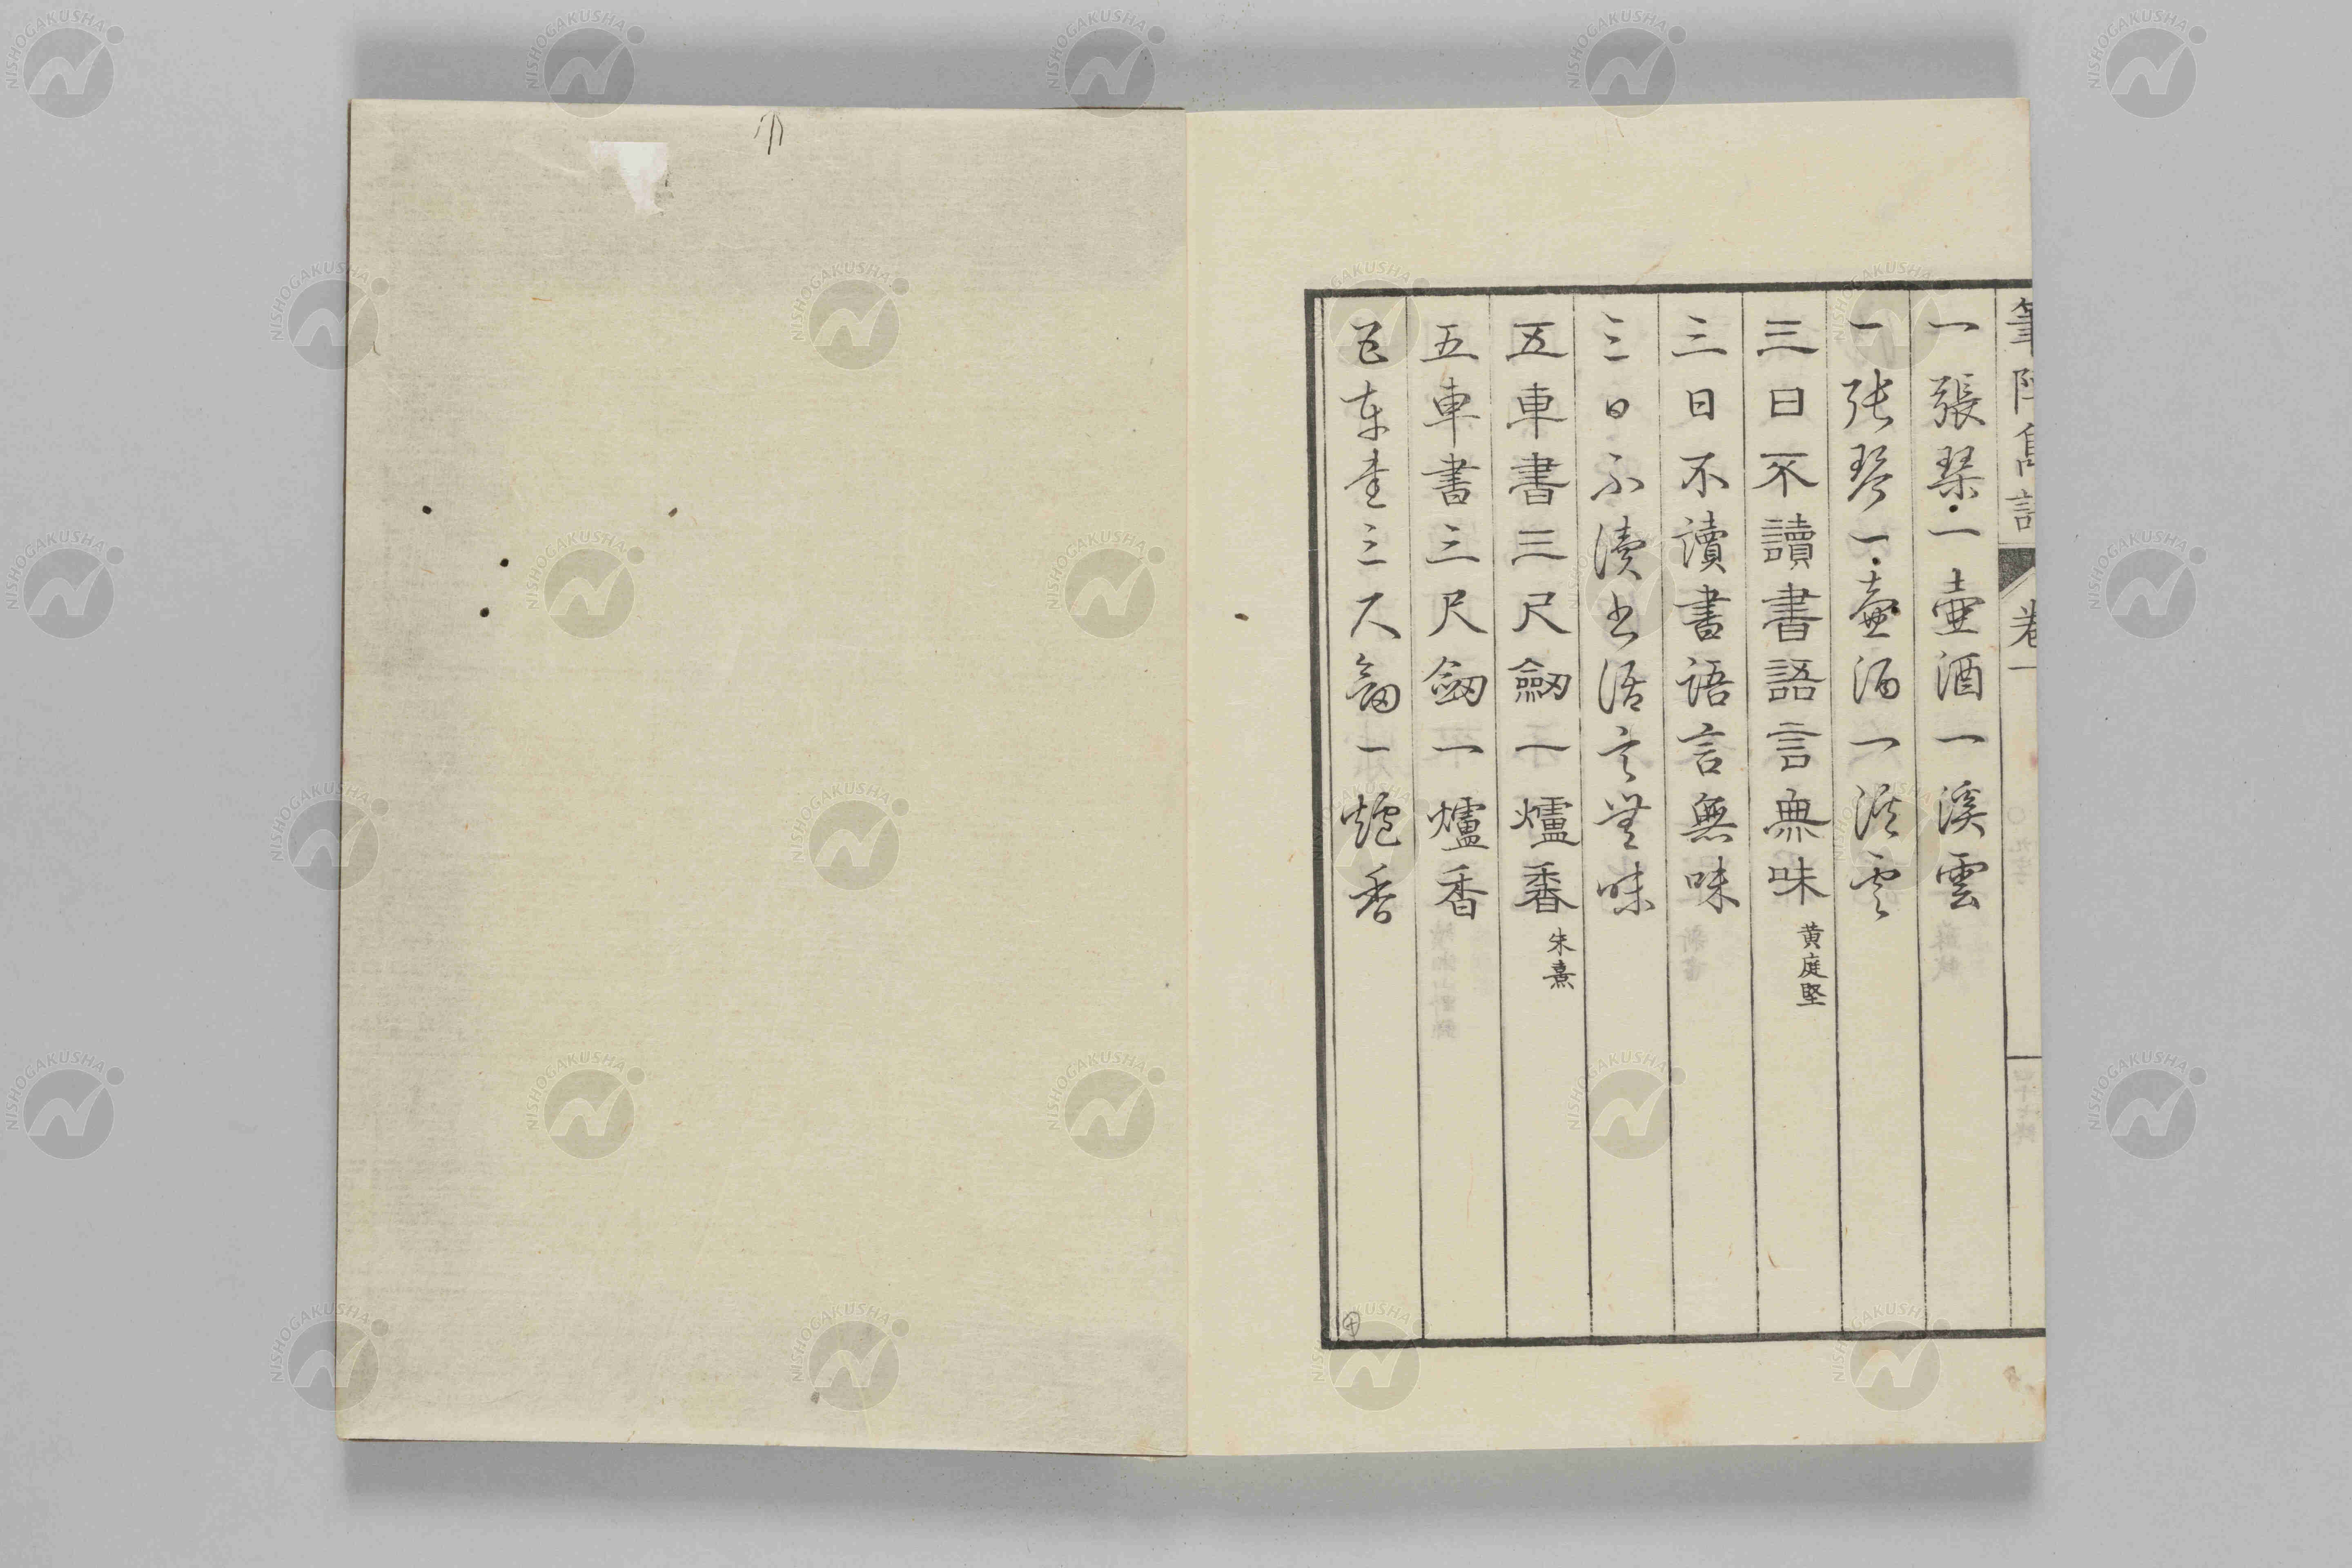 筆陣雋語 卷一
一張琴一壺酒一溪雲
一張琴一壺酒一溪雲
三日不讀書語言無味 黄庭堅
三日不讀書語言無味
三日不讀書語言無味
五車書三尺劒一爐香 朱熹
五車書三尺劒一爐香
五車書三尺劒一爐香
NISHOGAKUSHA